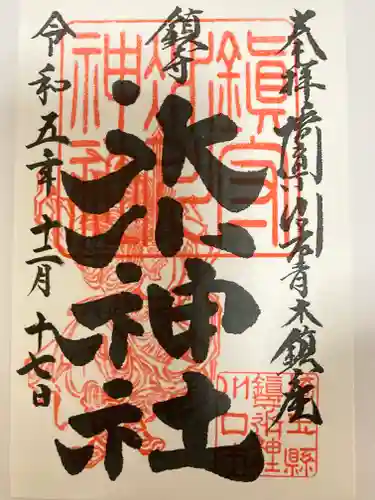 奉拝 埼玉県川口市青木鎮座
鎮守
氷川神社
令和五年 十二月 十七日
鎮守
氷川
神社
埼玉縣
鎮守氷川神社
川口市